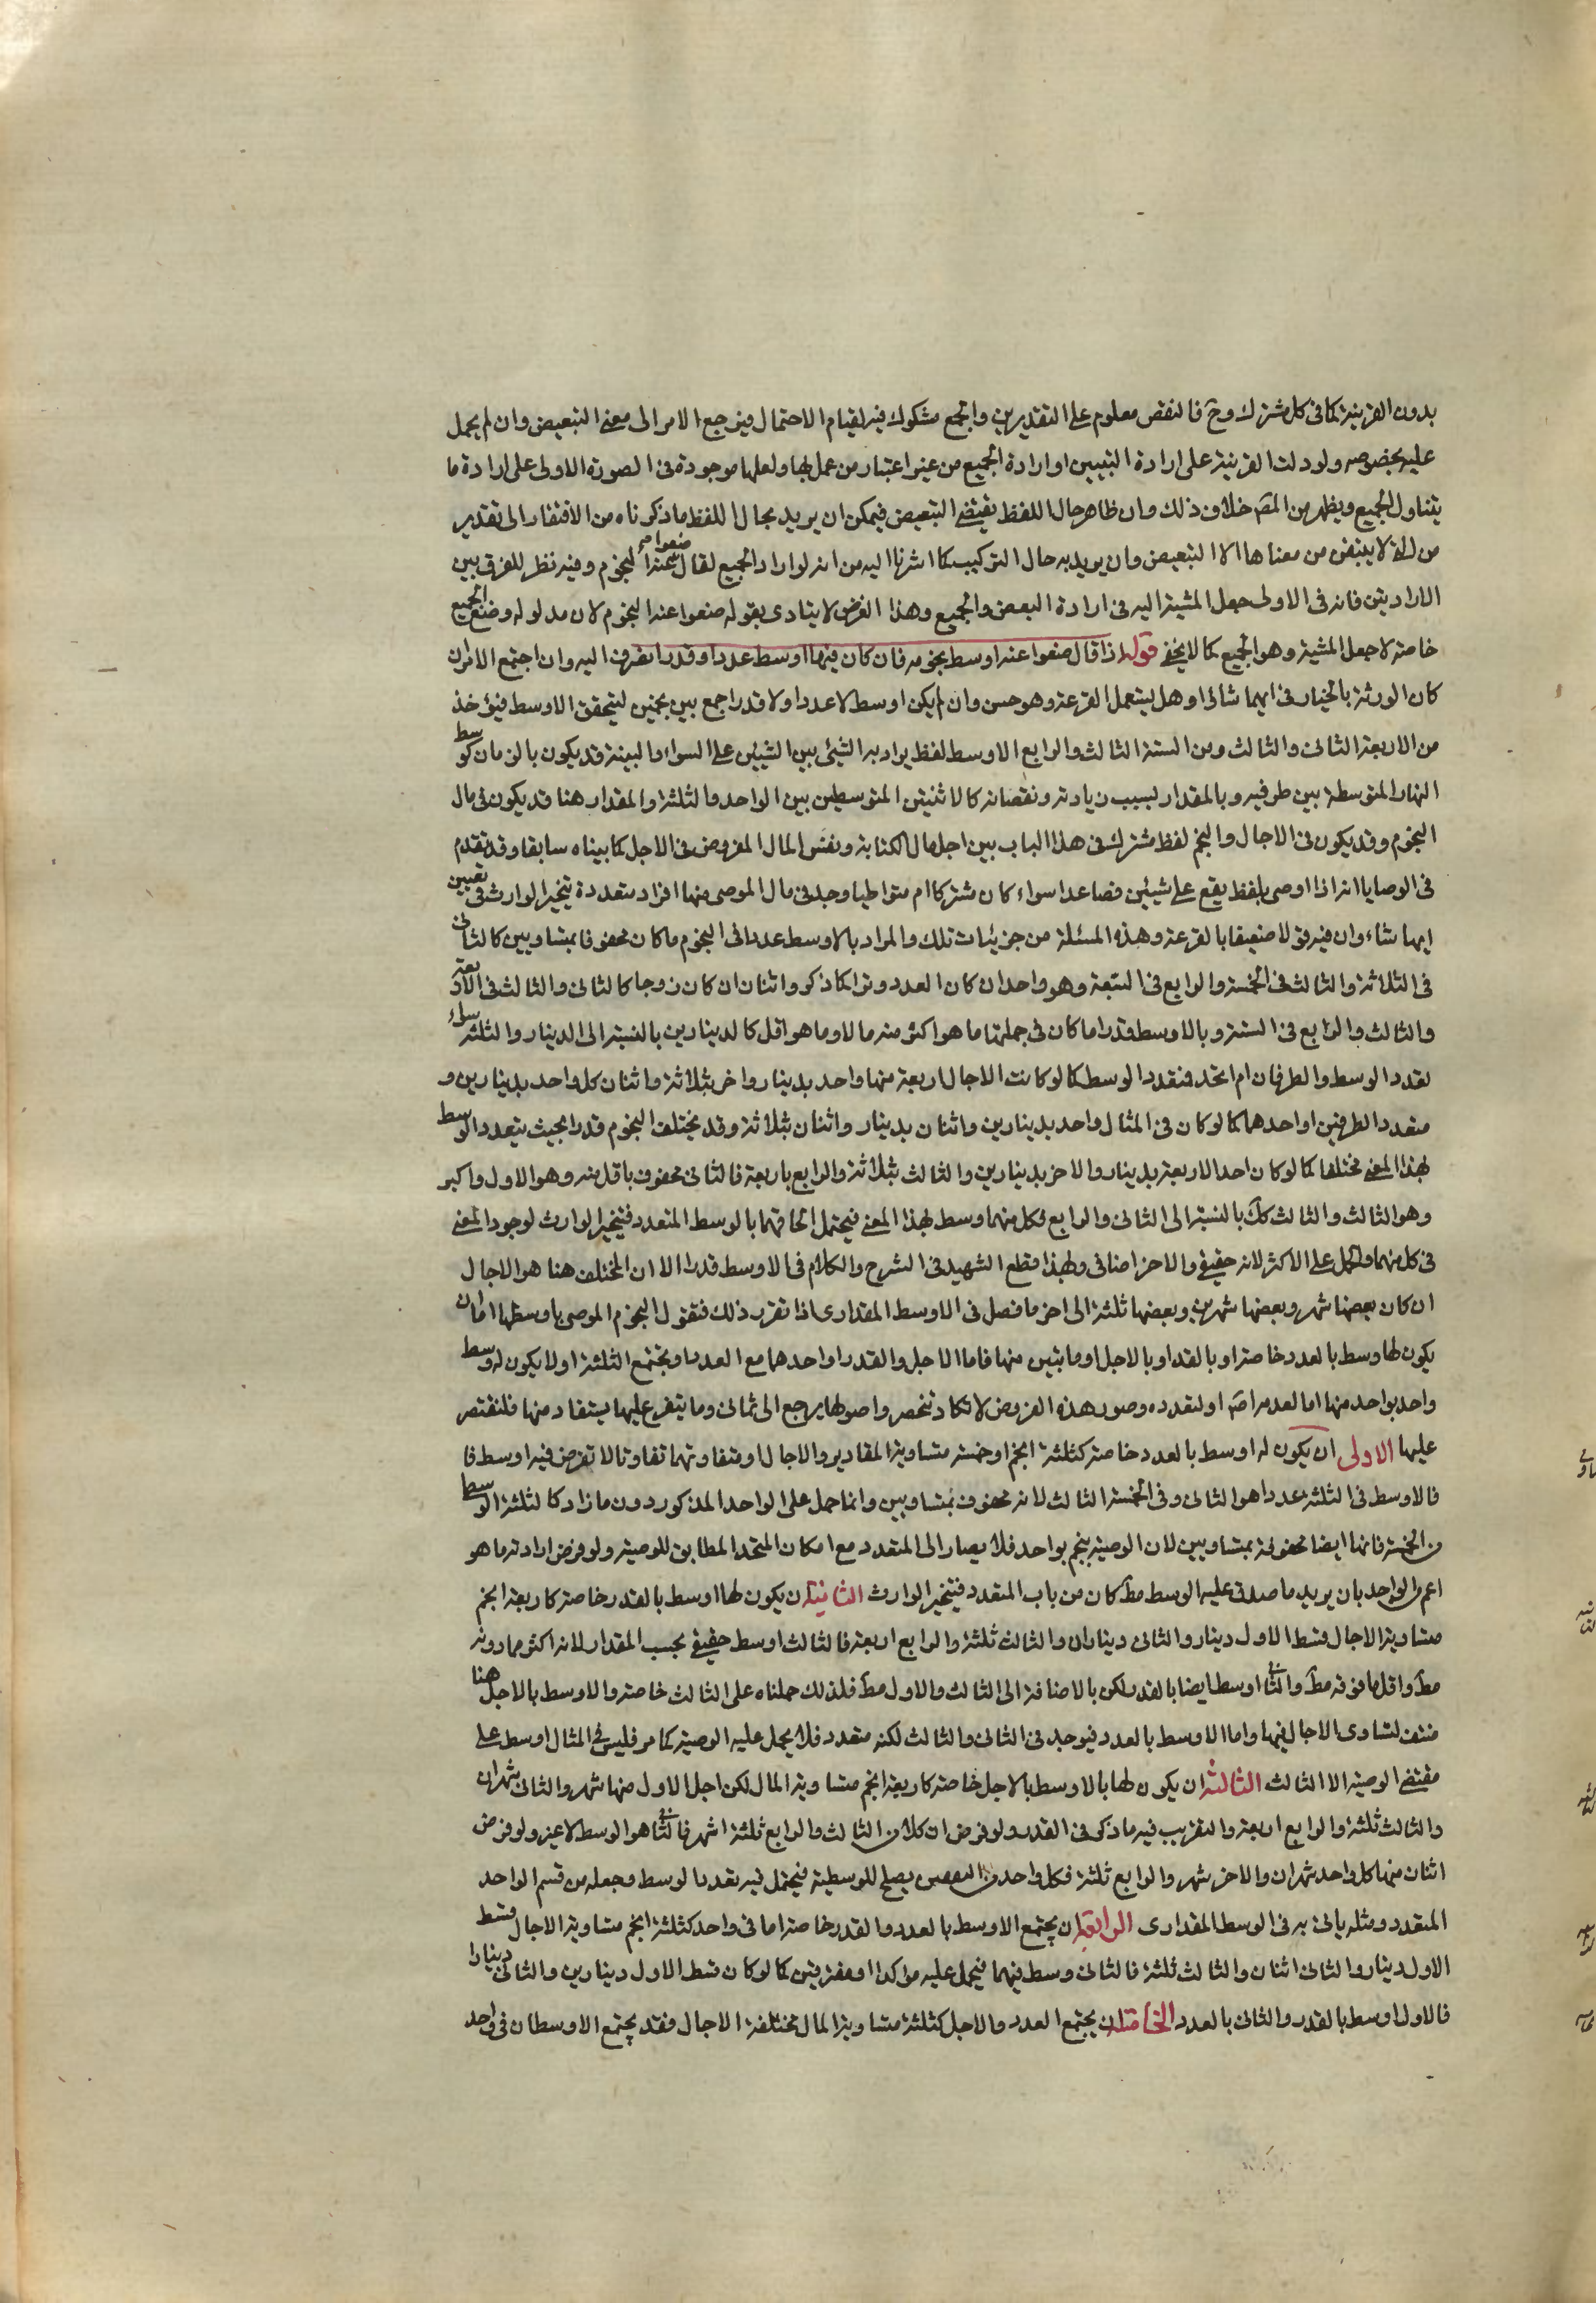 بدون القرينة كما في كل مشترك وح فالنقص معلوم على التقديرين والجمع مشكوك فيه لقيام الاحتمال فيرجع الامر الى معنى التبعيض وان لم يحمل
عليه بخصوصه ولو دلت القرينة على ارادة التبيين او ارادة الجميع من غير اعتبار من عمل بها ولعلها موجودة في الصورة الاولى على ارادة ما
يتناول الجميع ويظهر من المصّ خلاف ذلك وان ظاهر حال اللفظ يقتضي التبعيض فيمكن ان يريد بحال اللفظ ما ذكرناه من الافتقار الى تقدير
من لانه لا ينبغي من معناها الا التبعيض وان يريد به حال التركيب كما اشرنا اليه من انه لو اراد الجميع لقال ضعوا عنه النجوم وفيه نظر للفرق بين
الارادتين فانه في الاولى جعل المشية اليه في ارادة البعض والجميع وهذا الغرض لا يتادى بقوله ضعوا عنه النجوم لان مدلوله وضع الجميع
خاصة لا جعل المشية وهو الجميع كما لا يخفى قوله اذا قال ضعوا عنه اوسط نجومه فان كان فيها اوسط عددا وقدرا انصرف اليه وان اجتمع الامران
كان الورثة بالخيار في ايهما شاؤا وهل يستعمل القرعة وهو حسن وان لم يكن اوسط لا عددا ولا قدرا جمع بين نجمين ليتحقق الاوسط فيؤخذ
من الاربعة الثاني والثالث ومن الستة الثالث والرابع الاوسط لفظ يراد به الشيئ بين الشيئين على السواء والبينة قد يكون بالزمان كوسط
النهار المتوسطة بين طرفيه وبالمقدار بسبب زيادته ونقصانه كالاثنين المتوسطين بين الواحد والثلثة والمقدار هنا قد يكون في مال
النجوم وقد يكون في الاجال والنجم لفظ مشترك في هذا الباب بين اجل مال الكتابة ونفس المال المفروض في الاجل كما بيناه سابقا وقد تقدم
في الوصايا انه اذا اوصى بلفظ يقع على شيئين فصاعدا سواء كان مشتركا ام متواطيا وجد في مال الموصى منها افراد متعددة يتخير الوارث في تعيين
ايها شاء وان فيه قولا ضعيفا بالقرعة وهذه المسئلة من جزئيات تلك والمراد بالاوسط عددا في النجوم ما كان محفوفا بمتساويين كالثاني
في الثلاثة والثالث في الخمسة والرابع في السبعة وهو واحد ان كان العدد وترا كما ذكر واثنان ان كان زوجا كالثاني والثالث في الاربعة
والثالث والرابع في الستة وبالاوسط قدرا ما كان في جملتها ما هو اكثر منه مالا وما هو اقل كالدينارين بالنسبة الى الدينار والثلثة سواء
تعدد الوسط والطرفان ام اتحد فتعدد الوسط كما لو كانت الاجال اربعة منها واحد بدينار واخر بثلاثة واثنان كل واحد بدينارين و
متعدد الطرفين او احدهما كما لو كان في المثال واحد بدينارين واثنان بدينار واثنان بثلاثة وقد يختلف النجوم قدرا بحيث يتعدد الوسط
بهذا المعنى مختلفا كما لو كان احد الاربعة بدينار والاخر بدينارين والثالث بثلاثة والرابع باربعة فالثاني محفوف باقل منه وهو الاول واكبر
وهو الثالث والثالث كك بالنسبة الى الثاني والرابع فكل منهما وسط بهذا المعنى فيحتمل الحاقهما بالوسط المتعدد فيتخير الوارث لوجود المعنى
في كل منهما والحمل على الاكثر لانه حقيقي والاخر اضافي وبهذا قطع الشهيد في الشرح والكلام في الاوسط قدرا الا ان المختلف هنا هو الاجال
ان كان بعضها شهر وبعضها شهرين وبعضها ثلثة الى اخر ما فصل في الاوسط المقداري اذا تقرر ذلك فنقول النجوم الموصى باوسطها اما ان
يكون لها وسط بالعدد خاصة او بالقدر او بالاجل او ما بتين منها فاما الاجل والقدر او احدهما مع العدد او يجتمع الثلثة او لا يكون له وسط
واحد بواحد منها اما لعدمه راسا او لتعدده وصور هذه الفروض لا تكاد تنحصر واصولها يرجع الى ثماني وما يتفرع عليها يستفاد منها فلنقتصر
عليها الاولى ان يكون له اوسط بالعدد خاصة كثلثة انجم او خمسة متساوية المقادير والاجال او متفاوتهما تفاوتا لا تفرض فيه اوسط فا
فالاوسط في الثلثة عددا هو الثاني وفي الخمسة الثالث لانه محفوف بمتساويين وانما حمل على الواحد المذكور دون ما زاد كالثلثة الوسط
من الخمسة فانها ايضا محفوفة بمتساويين لان الوصية بنجم بواحد فلا يصار الى المتعدد مع امكان المتحد المطابق للوصية ولو فرض ارادته ما هو
اعم من الواحد بان يريد ما صدق عليه الوسط مط كان من باب المتعدد فيتخير الوارث الثانية ان يكون لها اوسط بالقدر خاصة كاربعة انجم
متساوية الاجال قسط الاول دينار والثاني ديناران والثالث ثلثة والرابع اربعة فالثالث اوسط حقيقي بحسب المقدار لانه اكثر مما دونه
مط واقل مما فوقه مط والثاني اوسط ايضا بالقدر لكن بالاضافة الى الثالث والاول مط فلذلك حملناه على الثالث خاصة والاوسط بالاجل هنا
منتف لتساوى الاجال فيها واما الاوسط بالعدد فيوجد في الثاني والثالث لكنه متعدد فلا يحمل عليه الوصية كما مر فليس في المثال اوسط على
مقتضى الوصية الا الثالث الثالثة ان يكون لها بالاوسط بالاجل خاصة كاربعة انجم متساوية المال لكن اجل الاول منها شهر والثاني شهران
والثالث ثلثة والرابع اربعة والتقريب فيه ما ذكر في القدر ولو فرض ان كلا من الثالث والرابع ثلثة اشهر فالثاني هو الوسط لا غير ولو فرض
اثنان منها كل واحد شهران والاخر شهر والرابع ثلثة فكل واحد من البعضين يصلح للوسطية فيحتمل فيه تعدد الوسط وجعله من قسم الواحد
المتعدد ومثله ياتي به في الوسط المقدارى الرابعة ان يجتمع الاوسط بالعدد والقدر خاصة اما في واحد كثلثة انجم متساوية الاجال قسط
الاول دينار والثاني اثنان والثالث ثلثة فالثاني وسط فيهما فيحمل عليه مؤكدا او مفترقين كما لو كان قسط الاول دينارين والثاني دينارا
فالاول اوسط بالقدر والثاني بالعدد الخامسة ان يجتمع العدد والاجل كثلثة متساوية المال مختلفة الاجال فقد يجتمع الاوسطان في واحد